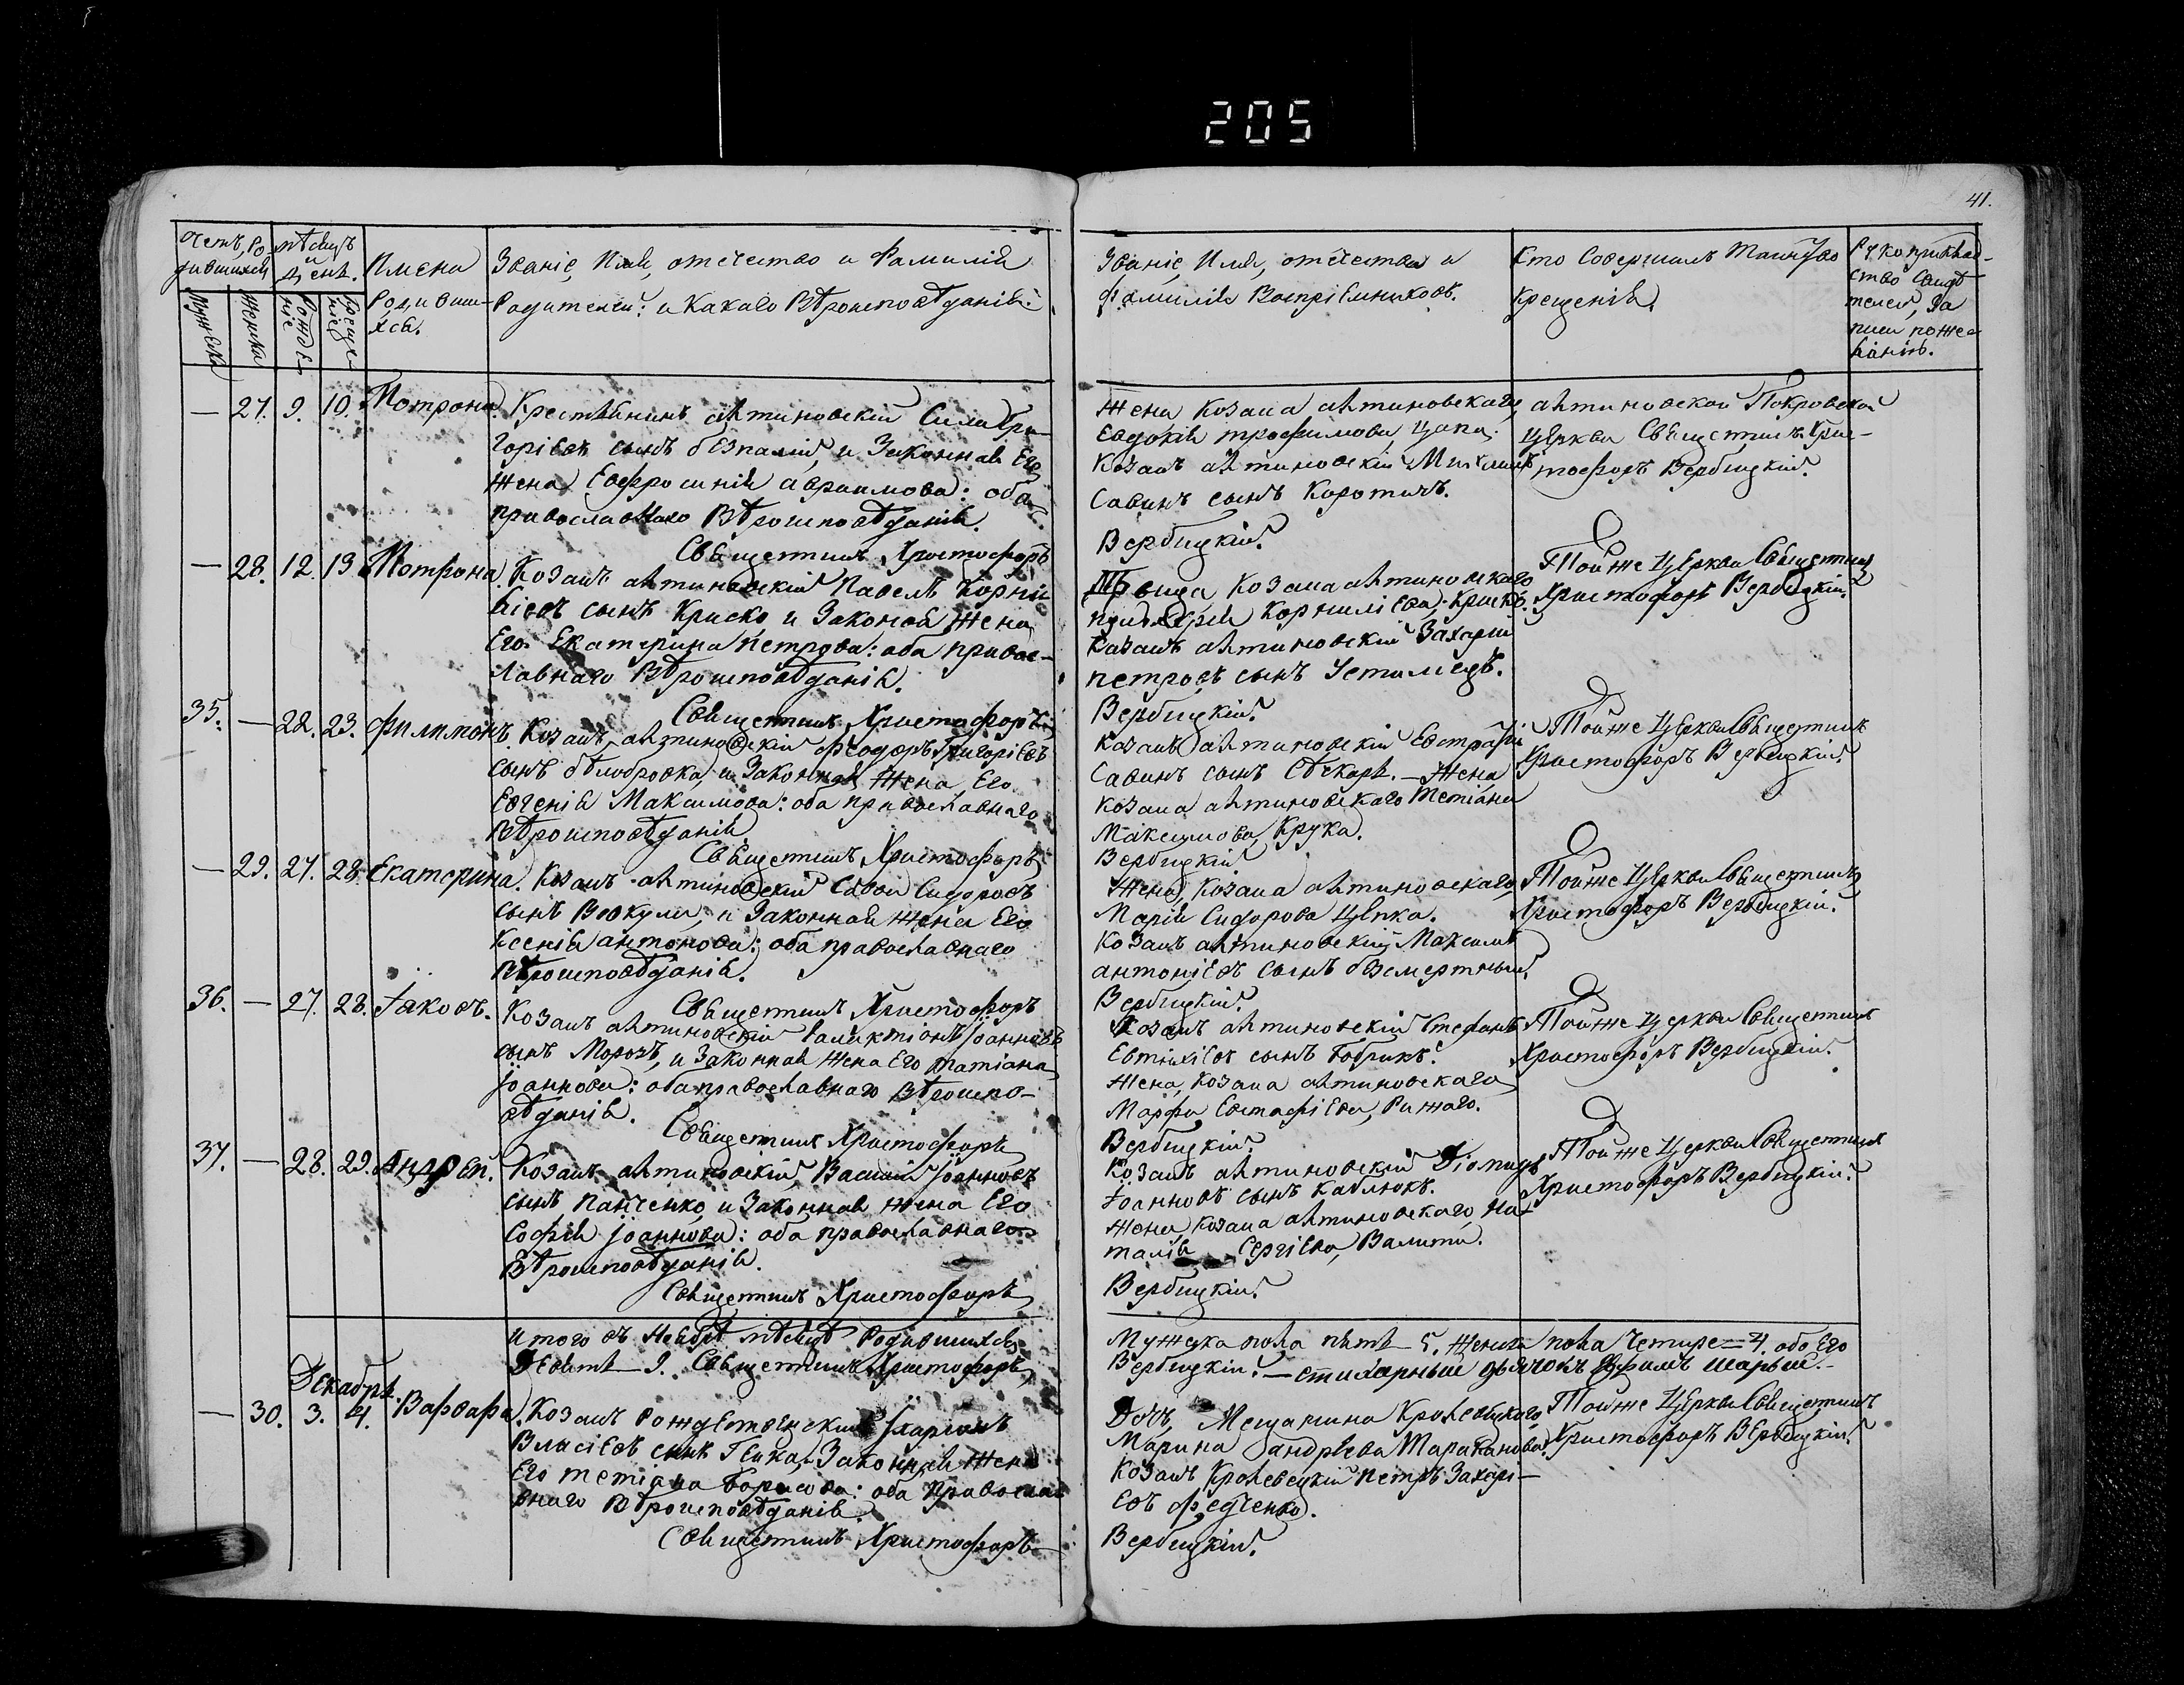 205
41.
Счетъ Ро-
дившихся
мѣсяцъ
и
день.
Мужеска
Женска
Рожде-
ніе
Креще-
ніе
Имена
Родивши-
хся.
Званіе, Имя, отечество и Фамилія
Родителей: и Какаго Вѣроисповѣданія:
Званіе, Имя, отечество и
Фамилія Воспріемниковъ.
Кто Совершалъ Таинство
Крещенія.
Рукоприклад-
ство Свидѣ-
телей, За
писи поже-
ланію.
— 27. 9. 10. Мотрона.
Крестьянинъ алтиновскій Сила Гри-
горіевъ сынъ безпалій, и Законная Его
жена Евфросинія авраимова: оба
православнаго Вѣроисповѣданія.
Священникъ Христофоръ
Жена Козака алтиновскаго,
Евдокія трофимова, Цапа.
Козакъ алтиновскій
Савинъ сынъ Коротичъ.
Вербицкій.
алтиновской Покровской
Церкви Священникъ Хрис-
тофоръ Вербицкій.
— 28. 12. 13 Мотрона.
Козакъ алтиновскій Павелъ Корни-
ліевъ сынъ Криско и Законая Жена
Его Екатерина Петрова: оба правос-
лавнаго Вѣроисповѣданія.
Священникъ Христофоръ
Козака алтиновскаго
Корниліева, Криско.
Козакъ алтиновскій Захарій
петровъ сынъ Устимецъ.
Вербицкій.
Тойже Церкви Священник
Христофоръ Вербицкій.
35. — 22. 23. Филимонъ.
Козакъ алтиновскій Феодоръ Григоріевъ
сынъ бѣлобровка, и Законная Жена, Его
Евгенія Максимова: оба православнаго
Вѣроисповѣданія.
Священникъ Христофоръ
Козакъ алтиновскій Евстрафій
Савинъ сынъ Слѣкарь. — Жена
Козака алтиновскаго Тетіана
Максимова, Крука.
Вербицкій
Тойже Церкви Священникъ
Христофоръ Вербицкій.
— 29. 27. 28. Екатерина.
Козакъ алтиновскій Савва Сидоровъ
сынъ Вовкула, и Законная жена Его
Ксенія антонова: оба православнаго
Вѣроисповѣданія.
Священникъ Христофоръ
Жена, Козака алтиновскаго,
Марія Сидорова Цепка.
Козакъ алтиновскій Максимъ
антоніевъ сынъ безмертный.
Вербицкій.
Тойже Церкви Священникъ
Христофоръ Вербицкій.
36. — 27. 28. Іаковъ.
Козакъ алтиновскій Галактіонъ Іоанновъ
сынъ Морозъ, и Законная жена Его татіана
іоаннова: оба православнаго Вѣроиспо-
вѣданія.
Священникъ Христофоръ
Козакъ алтиновскій Стефанъ
Евтихіевъ сынъ Бобрикъ.
Жена, Козака алтиновскаго
Марфа Евстафіева, Рижаго.
Вербицкій.
Тойже Церкви Священникъ
Христофоръ Вербицкій.
37. — 28. 29. Андрей.
Козакъ алтиновскій, Василій Іоанновъ
сынъ, Панченко, и Законная жена Его
Софія іоаннова: оба православнаго
Вѣроисповѣданія.
Священникъ Христофоръ
Козакъ алтиновскій Діомидъ
Іоанновъ сынъ Каблюкъ.
Жена Козака алтиновскаго, На-
талія Сергіева, Валита.
Вербицкій.
Тойже Церкви Священникъ
Христофоръ Вербицкій.
Итого въ Ноябрѣ мѣсяцѣ Родившихся
Девять — 9. Священникъ Христофоръ
Мужеска пола пять — 5. Женска пола Четире = 4. обо Его
Вербицкій. — стихарный дьячокъ Шарый.
Декабрь.
— 30. 3. 4. Варвара.
Козакъ Рождественскій Иларіонъ
Власіевъ сынъ Гейка, Законная Жена
Его тетіана борисова: оба Православ
внаго Вѣроисповѣданія.
Священникъ Христофоръ
Дочь, Мещанина Кролевецкаго,
Марина андреева Тараканова.
Козакъ Кролевецкій Петръ Захарі-
евъ Федченко.
Вербицкій.
Тойже Церкви Священникъ
Христофоръ Вербицкій.